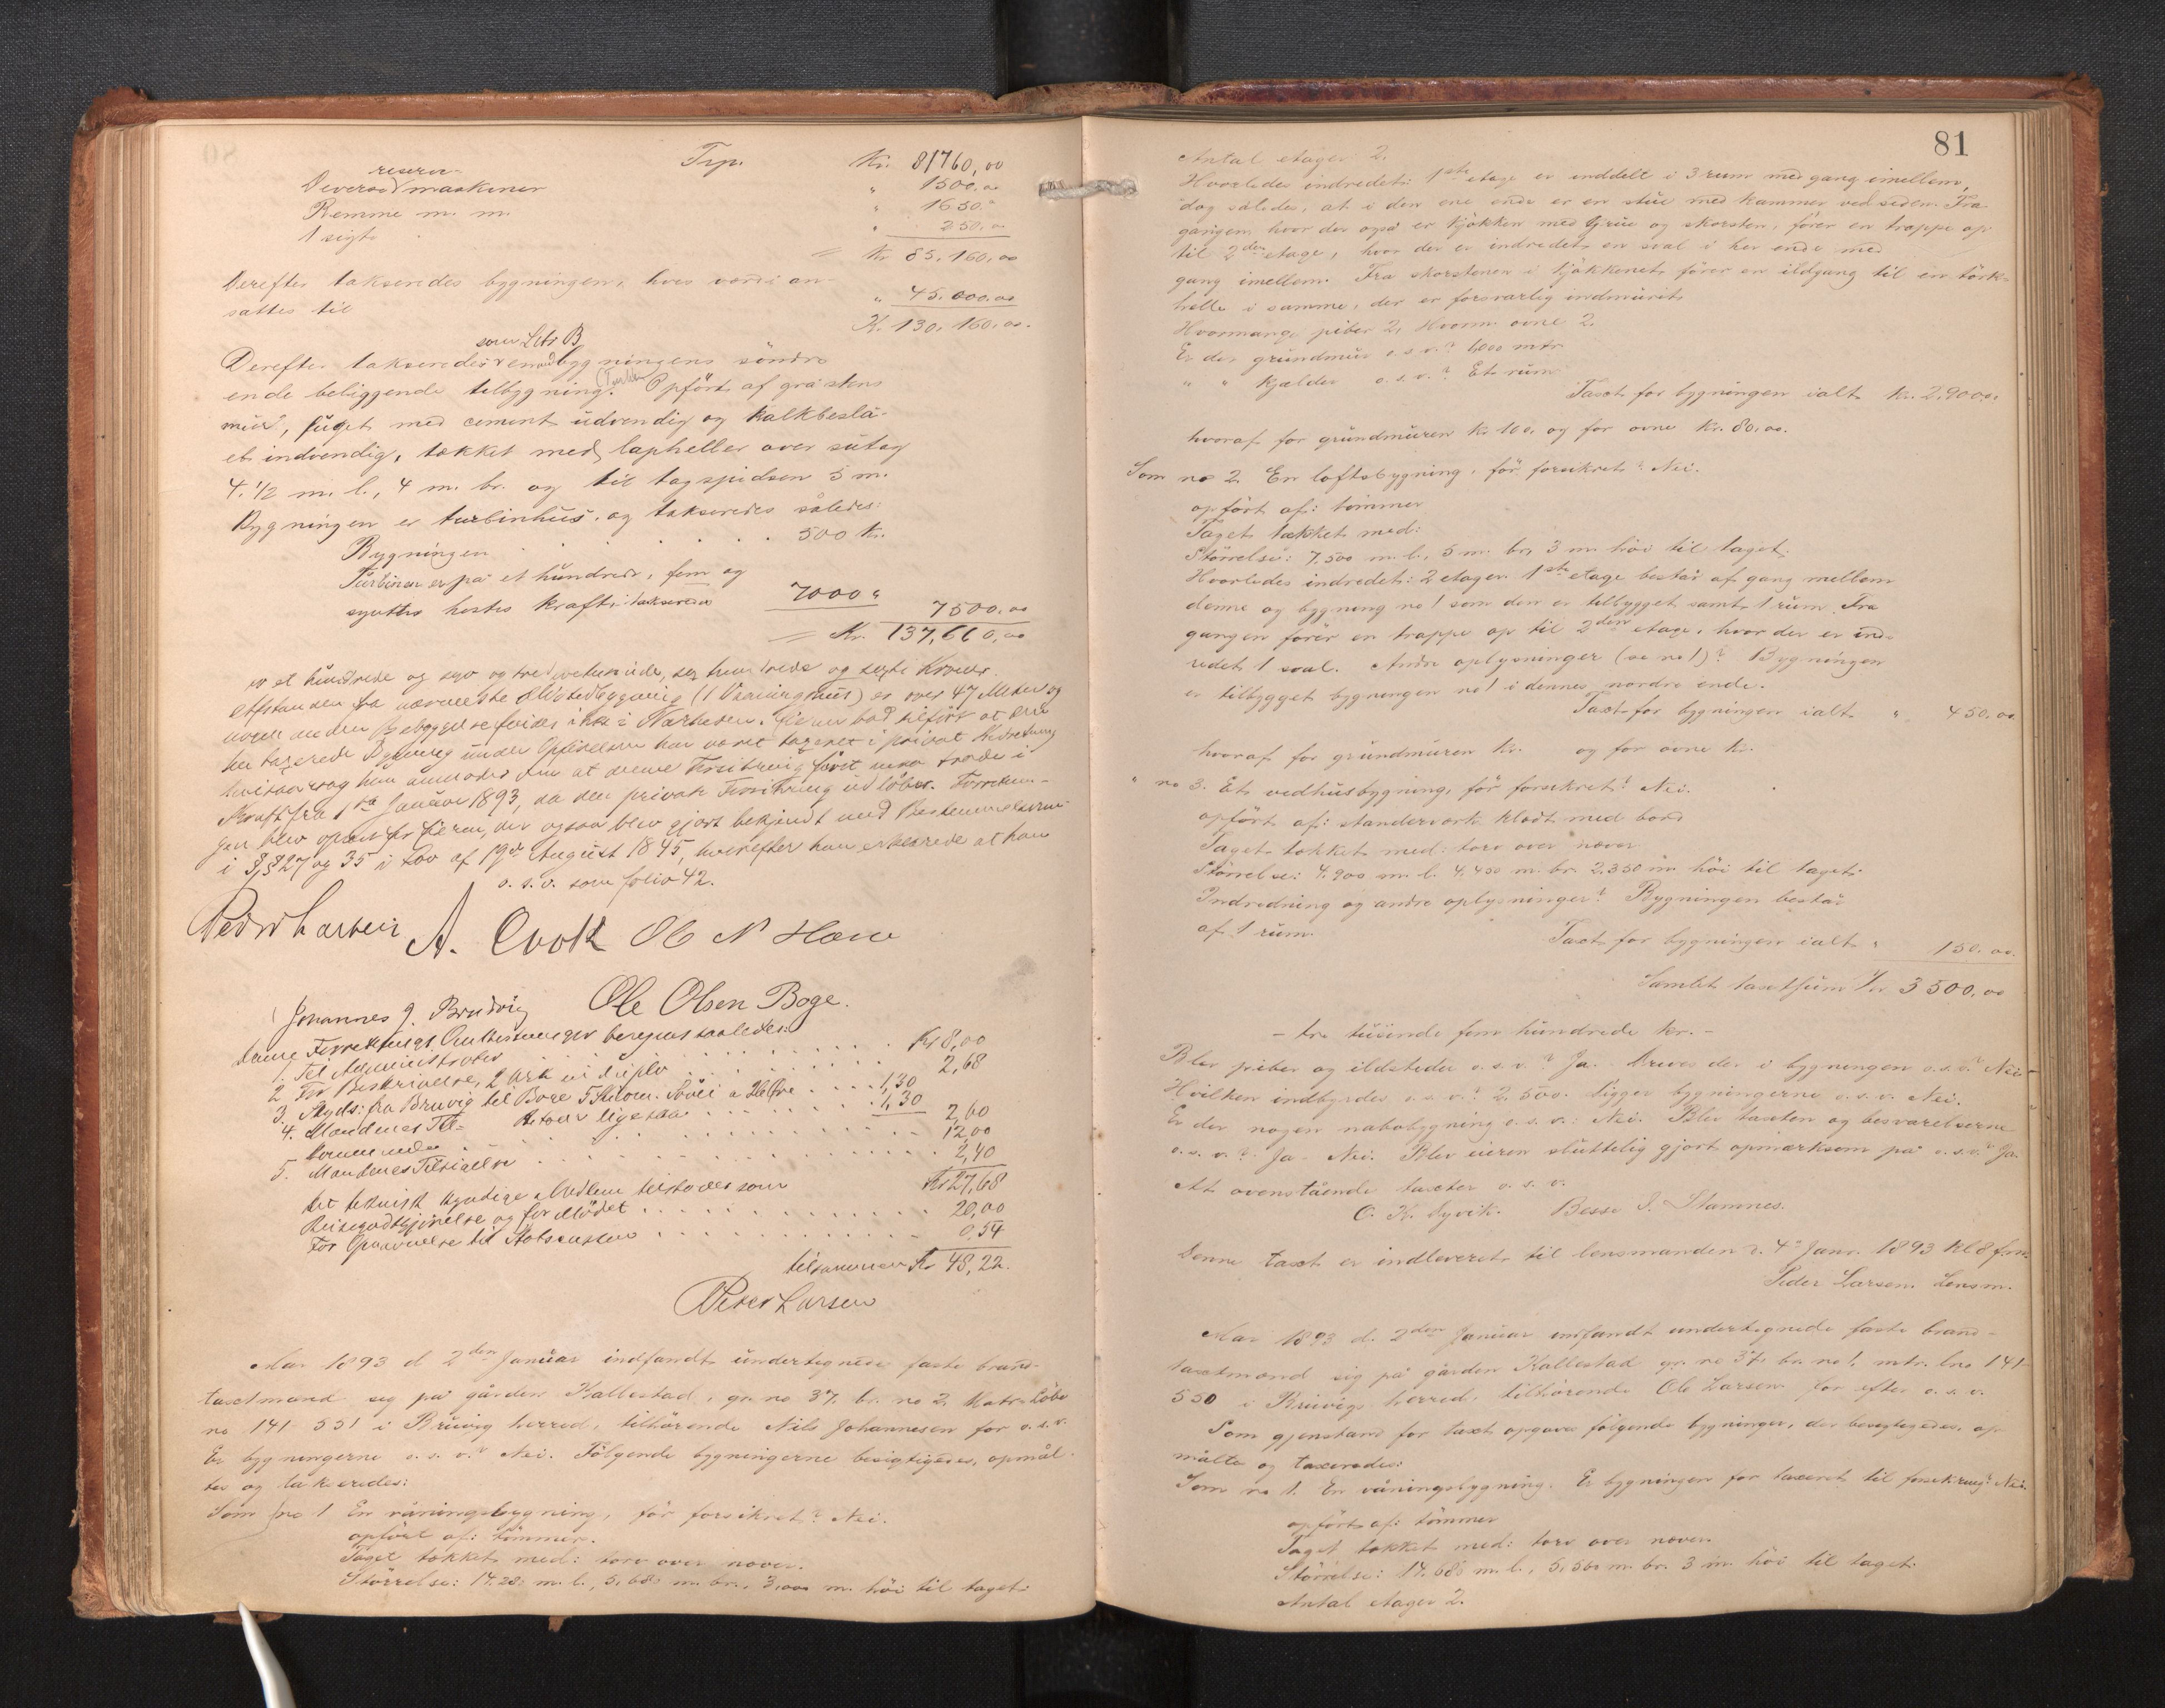 Trp. Kr. 81760,00
reserve-
Diverse maskiner " 1500,00
Remme m. m. " 1650."
1 sigte " 250,00
= Kr 85,160,00
Derefter takseredes bygningen, hvis værdi an-
sattes til " 45,000.00
K. 130,160,00.
som Litr B
Derefter takseredes ved bygningens söndre
ende beliggende tilbygning. Opfört af gråstens
mur, fuget med cement udvendig og kalkbeslå-
et indvendig, tækket med lapheller over sutag
4. 1/2 m. l., 4 m. br. og til tagspidsen 5 m.
Bygningen er turbinhus, og takseredes således:
Bygningen . . . . . 500 kr.
Turbinen er på et hundrede, fem og
sytti hestes kraft takseredes 7000 " 7500,00
= Kr. 137,660,00
er et hundrede og syv og tredive tusinde, sex hundrede og sexti Kroner.
Afstanden fra nærmeste Ildstedbygning (1 Vaaningshus) er over 47 Meter og
nogen anden Bebyggelse findes ikke i Nærheden. Eieren bad tilfört at den
her taxerede Bygning under Opförelsen har været taxeret i privat Indretning
hvisaarsag han anmoder om at denne Forsikring först maa træde i
Kraft fra 1ste Januar 1893, da den private Forsikring udlöber. Forretnin-
gen blev oplæst for Eieren, der ogsaa blev gjort bekjendt med Bestemmelserne
i §§ 27 og 35 i Lov af 19de August 1845, hvorefter han erklærede at han
o. s. v. som folio 42.
Peder Larsen A. Cook Ole N Hare
Johannes J. Brudvig Ole Olsen Boge.
Denne Forretnings Omkostninger beregnes saaledes:
1. Til Administrator . . . . . Kr 8,00
2. For Beskrivelse, 2 Ark in duplo . . . . 2,68
3. Skyds: fra Bruvig til Boge 5 Kilom. Sövei a 26 Öre . . . 1,30
Retour ligesaa . . . . 1,30 2,60
4. Mændenes . . . . 12,00
5. Mændenes Tilsigelse . . . . 2,40
Kr 27,68
Det teknisk kyndige Medlem tilstodes som
Reisegodtgjörelse og for Mödet . . . . 20,00
For Opkrævelse til Statskassen . . . . 0,54
tilsammen Kr 48,22.
Peder Larsen
Aar 1893 d 2den Januar indfandt undertegnede faste brand-
taxtmænd sig på gården Kallestad, gr. no 37, br. no 2 Matr. Löbe
no 141-551 i Bruvig herred, tilhörende Nils Johannesen for o. s. v.
Er bygningerne o. s. v.? Nei. Fölgende bygningerne besigtigedes, opmål-
tes og takseredes:
Som no 1 En våningsbygning, för forsikret? Nei.
opfört af: tömmer.
Taget tækket med: torv over næver.
Störrelse: 14.280 m. l., 5,680 m. br., 3,000 m. höi til taget.
81
Antal etager 2.
Hvorledes indredet: 1ste etage er inddelt i 3 rum med gang imellem,
dog således, at i den ene ende er en stue med kammer ved siden. Fra
gangen, hvor der også er kjökken med grue og skorsten, förer en trappe op
til 2den etage, hvor der er indredet en sval i hver ende med
gang imellem. Fra skorstenen i kjökkenet förer en ildgang til en törk-
helle i samme, der er forsvarlig indmuret.
Hvormange piber 2, Hvorm. ovne 2.
Er der grundmur o. s. v.? 1,000 mtr.
" " kjælder o. s. v.? Et rum
Taxt for bygningen ialt kr. 2,900,00.
hvoraf for grundmuren kr 100, og for ovne kr. 80,00.
Som no 2. En loftsbygning, för forsikret? Nei.
opfört af: tömmer
Taget tækket med:
Störrelse: 7.500 m. l., 5 m. br. 3 m. höi til taget.
Hvorledes indredet: 2 etager. 1ste etage består af gang mellem
denne og bygning no 1 som den er tilbygget samt 1 rum. Fra
gangen förer en trappe op til 2den etage, hvor der er ind-
redet 1 sval. Andre oplysninger (se no 1)? Bygningen
er tilbygget bygningen no 1 i dennes nordre ende.
Taxt for bygningen ialt " 450,00
hvoraf for grundmuren kr. og for ovne kr.
" no 3. Et vedhusbygning, för forsikret? Nei.
opfört af: standerværk klædt med bord
Taget tækket med: torv over næver.
Störrelse: 4.900 m. l. 4,400 m. br. 2.350 m höi til taget.
Indredning og andre oplysninger? Bygningen består
af 1 rum.
Taxt for bygningen ialt " 150,00.
Samlet taxtsum Kr 3500,00
- tre tusinde fem hundrede kr. -
Blev piber og ildsteder o. s. v.? Ja. Drives der i bygningen o. s. v.? Nei
Hvilken indbyrdes o. s. v.? 2,500. Ligger bygningerne o. s. v. Nei.
Er der nogen nabobygning o. s. v.: Nei. Blev taxten og besvarelserne
o. s. v.? Ja - Nei. Blev eieren sluttelig gjort opmærksom på o. s. v.? Ja.
At ovenstående taxter o. s. v.
O. K. Syvik. Besse I. Stamnes.
Denne taxt er indleveret til lensmanden d. 4de Janr. 1893 kl 8 f.m.
Peder Larsen. Lensm.
Aar 1893 d. 2den Januar indfandt undertegnede faste brand-
taxtmænd sig på gården Kallestad gr. no 37, br. no 1. mtr. lno 141-
550 i Bruvigs herred, tilhörende Ole Larsen for efter o. s. v.
Som gjenstand for taxt opgaves fölgende bygninger, der besigtigedes, op-
måltes og taxeredes:
Som no 1. En våningsbygning. Er bygningen för taxeret til forsikring? Nei.
opfört af: tömmer
Taget tækket med: torv over næver.
Störrelse: 14.680 m. l., 5,560 m. br. 3 m. höi til taget.
Antal etager 2.